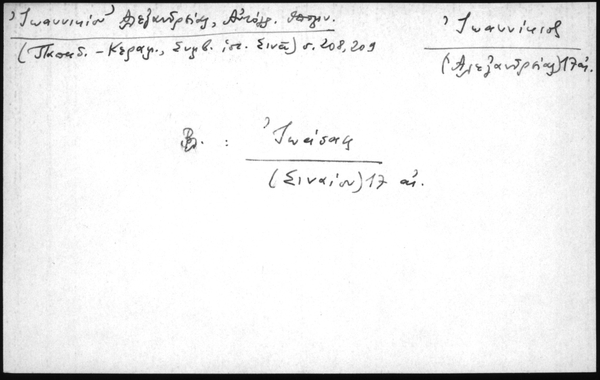 Ἰωαννικίου Ἀλεξανδρείας,
(Παπαδ. - Κεραμ., Συμβ. ἱστ. Σινᾶ) σ. 208, 209
Ἰωαννίκιος
(Ἀλεξανδρείας) 17 αἰ.
Β. : Ἰωάσαφ
(Σιναίου) 17 αἰ.